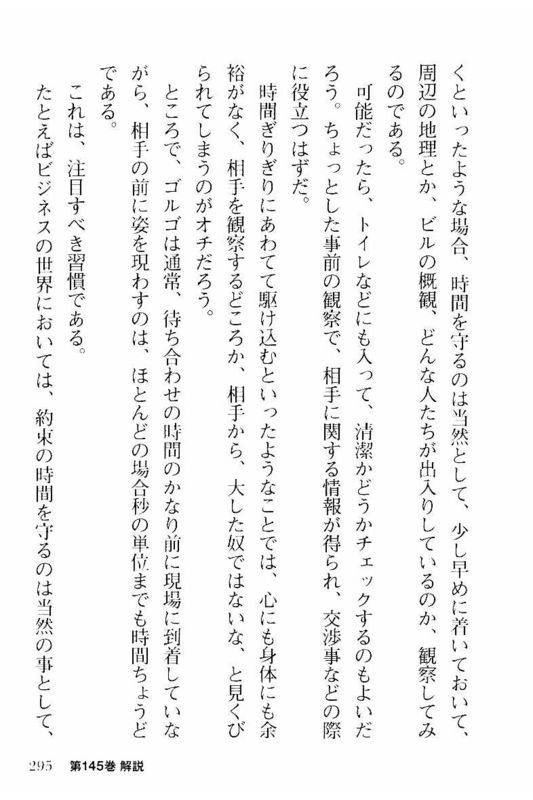 くといったような場合、時間を守るのは当然として、少し早めに着いておいて、
周辺の地理とか、ビルの概観、どんな人たちが出入りしているのか、観察してみ
るのである。
可能だったら、トイレなどにも入って、清潔かどうかチェックするのもよいだ
ろう。ちょっとした事前の観察で、相手に関する情報が得られ、交渉事などの際
に役立つはずだ。
時間ぎりぎりにあわてて駆け込むといったようなことでは、心にも身体にも余
裕がなく、相手を観察するどころか、相手から、大した奴ではないな、と見くび
られてしまうのがオチだろう。
ところで、ゴルゴは通常、待ち合わせの時間のかなり前に現場に到着していな
がら、相手の前に姿を現わすのは、ほとんどの場合秒の単位までも時間ちょうど
である。
これは、注目すべき習慣である。
たとえばビジネスの世界においては、約束の時間を守るのは当然の事として、
295 第145巻 解説